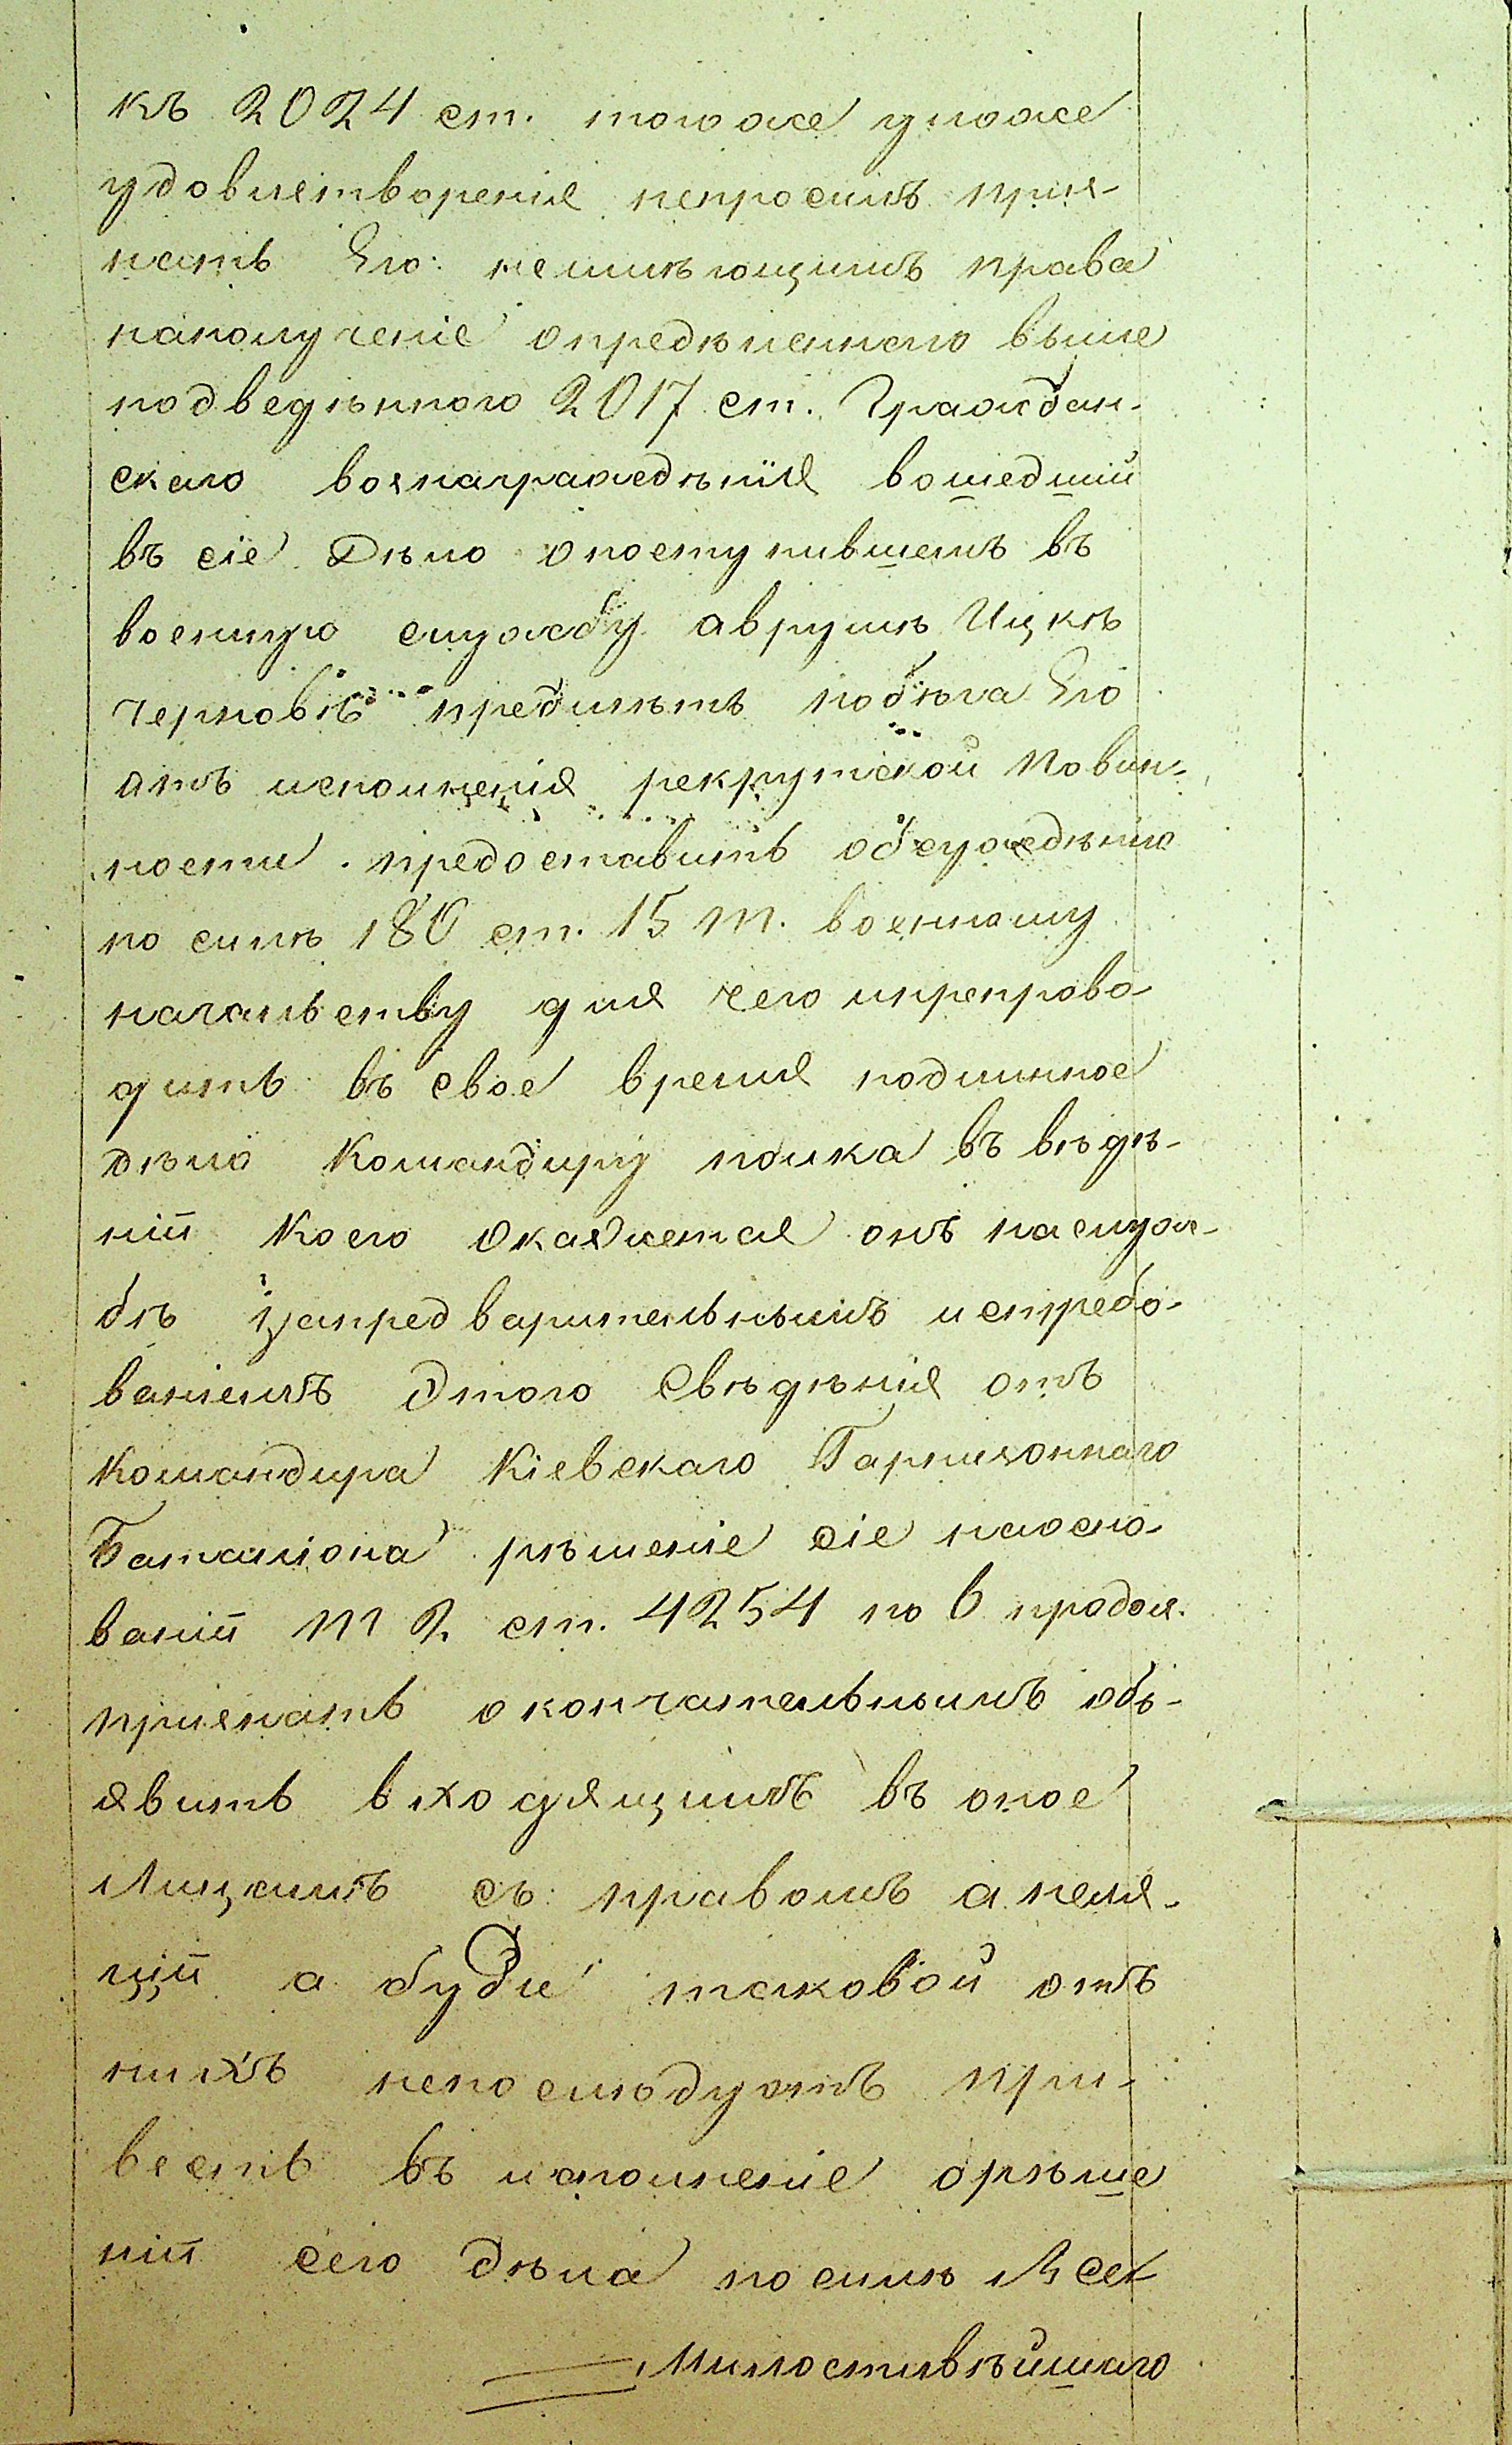 къ 2024 ст. тогоже уложе
удовлетворенія непросилъ приз-
нать Его: неимѣющимъ права
наполученіе опредѣленнаго выше
подведѣннаго 2017 ст. Граждан-
скаго вознагражедѣнія вошедшій
въ сіе Дѣло опоступившемъ въ
военную службу аврумѣ Ицкѣ
Черновѣ предимѣтъ побѣга Его
отъ исполненія рекрутской повин-
ности. предоставить обсужедѣнію
по силѣ 180 ст. 15 т. военному
начальству для чего ипрепрово-
дить въ свое время подлинное
дѣло Командиру полка въ вѣдѣ-
ніи коего окажется онъ наслуж-
бѣ запредварительнымъ истребо-
ваніемъ Этого Свѣдѣнія отъ
командира Кіевскаго Гарнизоннаго
Баталіона рѣшеніе сіе наосно-
ваніи т 2 ст. 4254 по 6 продол.
признать окончательнымъ объ-
явить входящимъ въ оное
Лицамъ съ правомъ апеля-
ціи а буде таковой отъ
нихъ непослѣдуетъ при-
весть въ исполненіе орѣше
ніи сего дѣла посилѣ Все
Милостивѣйшаго